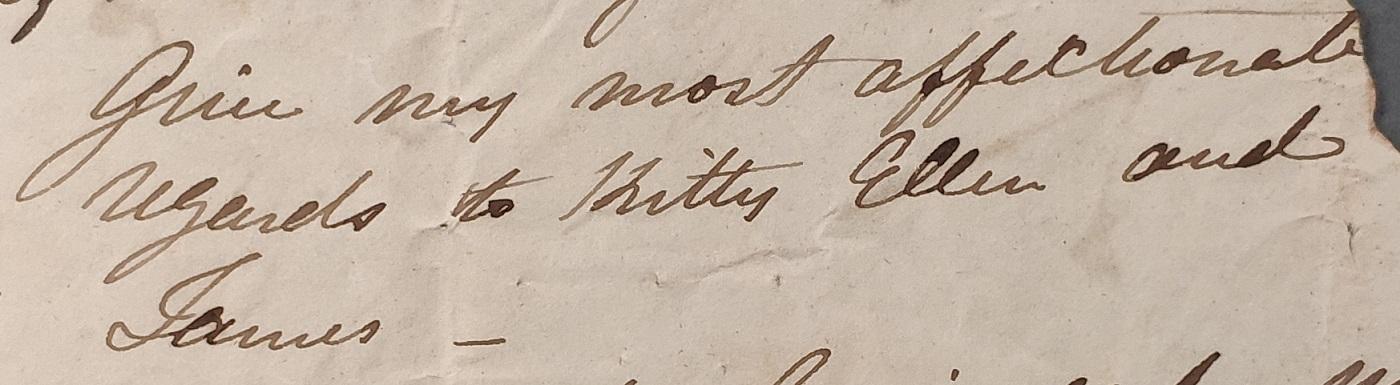 Give my most affectionate
regards to Kitty Ellen and
James —